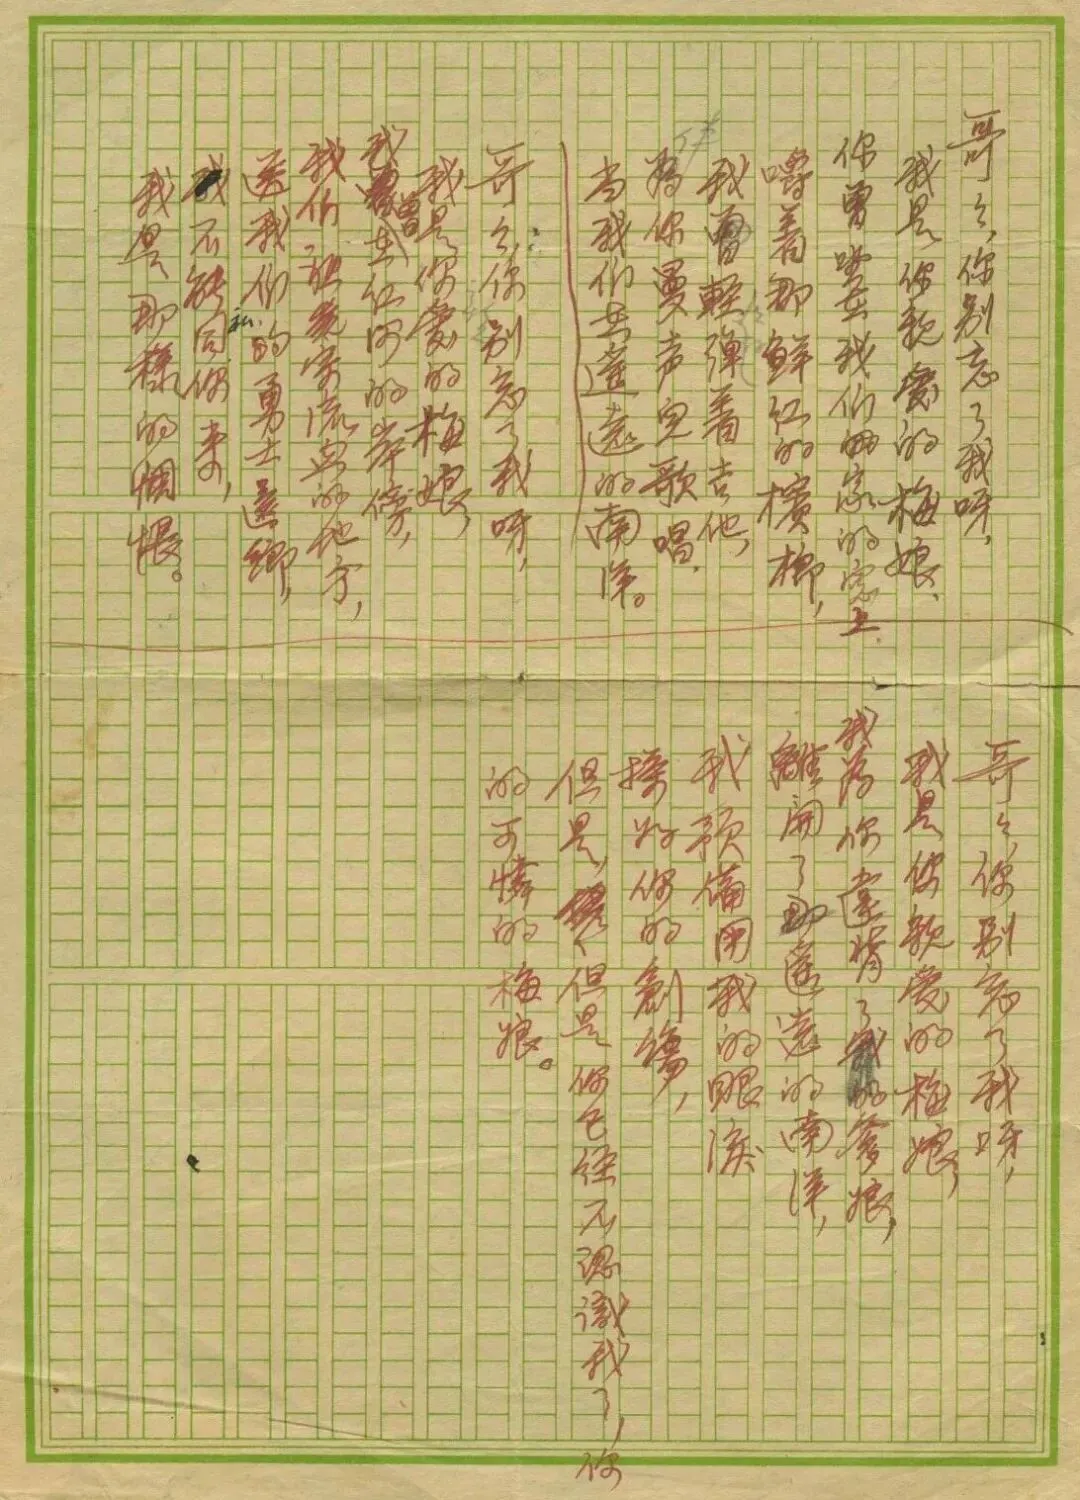 哥々,你别忘了我呀,
我是你親愛的梅娘、
你曾坐在我們的家的窓上.
嚼着那鮮红的檳榔,
我曾輕弹着吉他,
为你曼声儿歌唱.
当我们在遥远的南洋。
哥々,你别忘了我呀,
我是你爱的梅娘,
我曾在红河的岸傍,
我们流血的地方,
送我们的勇士还鄉,
我不能同你来,
我是那樣的惆悵。
哥々,你别忘了我呀,
我是你親爱的梅娘,
我为你違背了我的爹娘,
離開了那遥远的南洋,
我預備用我的眼淚
搽好你的創傷,
但是,但是你已经不認識我了,你
的可憐的梅娘。